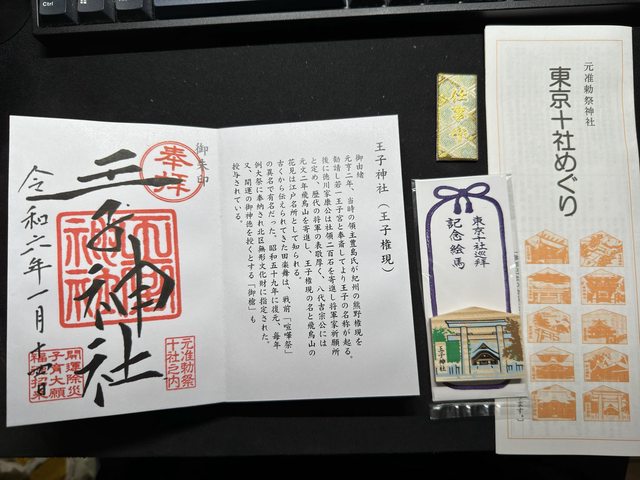 御朱印
奉拝
王子神社
令和六年一月十四日
元准勅祭
十社之内
開運除災
子育大願
王子神社（王子権現）
御由緒
元亨二年、当時の領主豊島氏が紀州の熊野権現を
勧請し若一王子宮と奉斎してより王子の名称が起る。
後に徳川家康公は社領二百石を寄進し将軍家祈願所
と定め、歴代の将軍の表敬厚く、八代吉宗公には
元文二年飛鳥山を寄進し、王子権現の名と飛鳥山の
花見は江戸名所として知られる。
古くから伝えられてきた田楽舞は、戦前「喧嘩祭」
の異名で有名だった。昭和五十九年に復元、毎年
例大祭に奉納され北区無形文化財に指定された。
又、開運の御神徳を授くとする「御槍」も
授与されている。
仕事守
東京十社巡拝
記念絵馬
王子神社
元准勅祭神社
東京十社めぐり